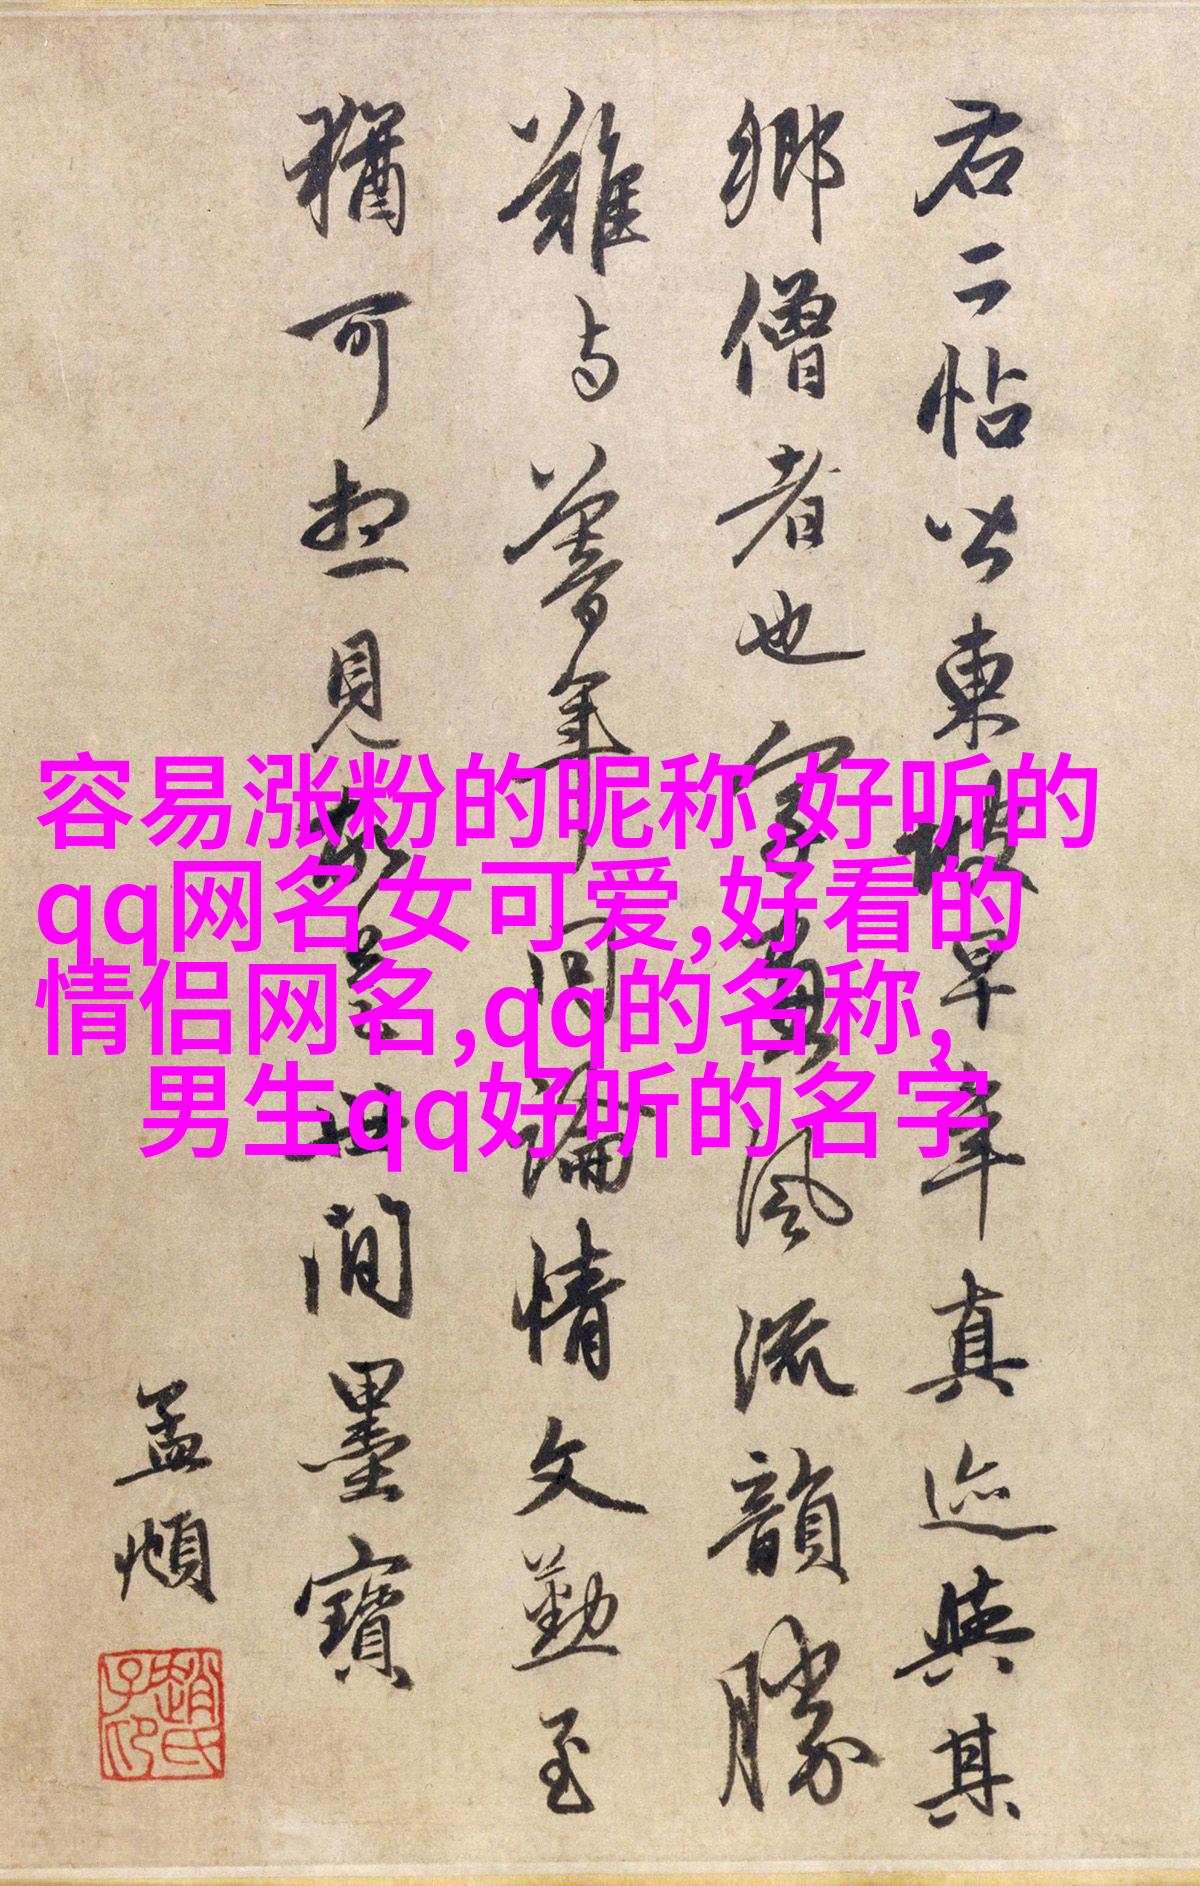 右二帖皆東坡早年真迹與其
鄉僧者也字畫風流韻勝
難与暮年同論情文勤至
猶可想見故是世間墨寶
孟頫
趙氏子卬
容易涨粉的昵称,好听的
qq网名女可爱,好看的
情侣网名,qq的名称,
男生qq好听的名字